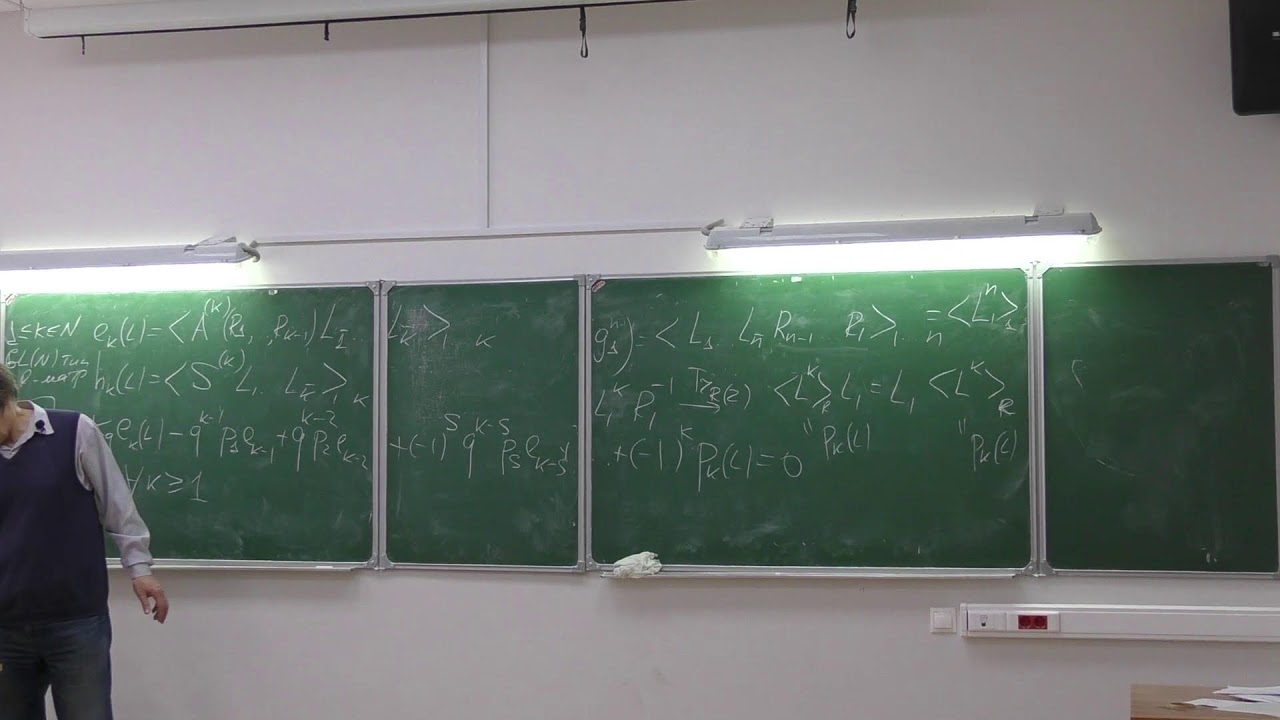 1 ≤ k ≤ N e_k(L) = <A^(k)(R_1, , R_{k-1}) L_1̄ . . L_k̄>_{1 k}
GL(N) тип
R-матр h_k(L) = <S^(k) L_1 . L_k̄>_{1 k}
k_q e_k(L) - q^{k-1} p_1 e_{k-1} + q^{k-2} p_2 e_{k-2} . + (-1)^s q^{k-s} p_s e_{k-s} + . . + (-1)^k p_k(L) = 0
∀ k ≥ 1
) = <L_1 . L_n̄ R_{n-1} . R_1>_{1. n} = <L_1^n>_1
L_1^k R_1^{-1} Tr_{R(2)} → <L^k>_R L_1 = L_1 <L^k>_R
" p_k(L) " p_k(L)